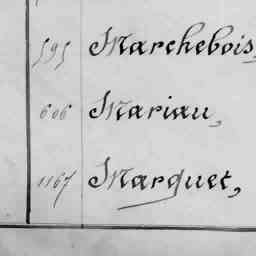 595 Marchebois,
606 Mariau,
1167 Marquet,